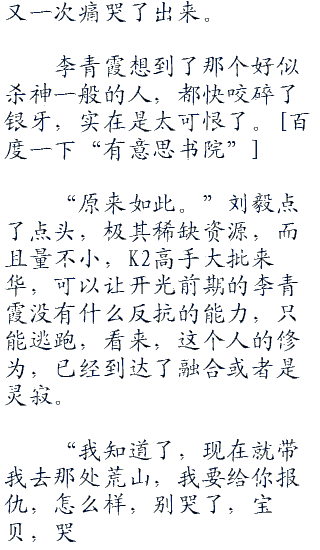 又一次痛哭了出来。
李青霞想到了那个好似
杀神一般的人，都快咬碎了
银牙，实在是太可恨了。[百
度一下“有意思书院”]
“原来如此。”刘毅点
了点头，极其稀缺资源，而
且量不小，K2高手大批来
华，可以让开光前期的李青
霞没有什么反抗的能力，只
能逃跑，看来，这个人的修
为，已经到达了融合或者是
灵寂。
“我知道了，现在就带
我去那处荒山，我要给你报
仇，怎么样，别哭了，宝
贝，哭